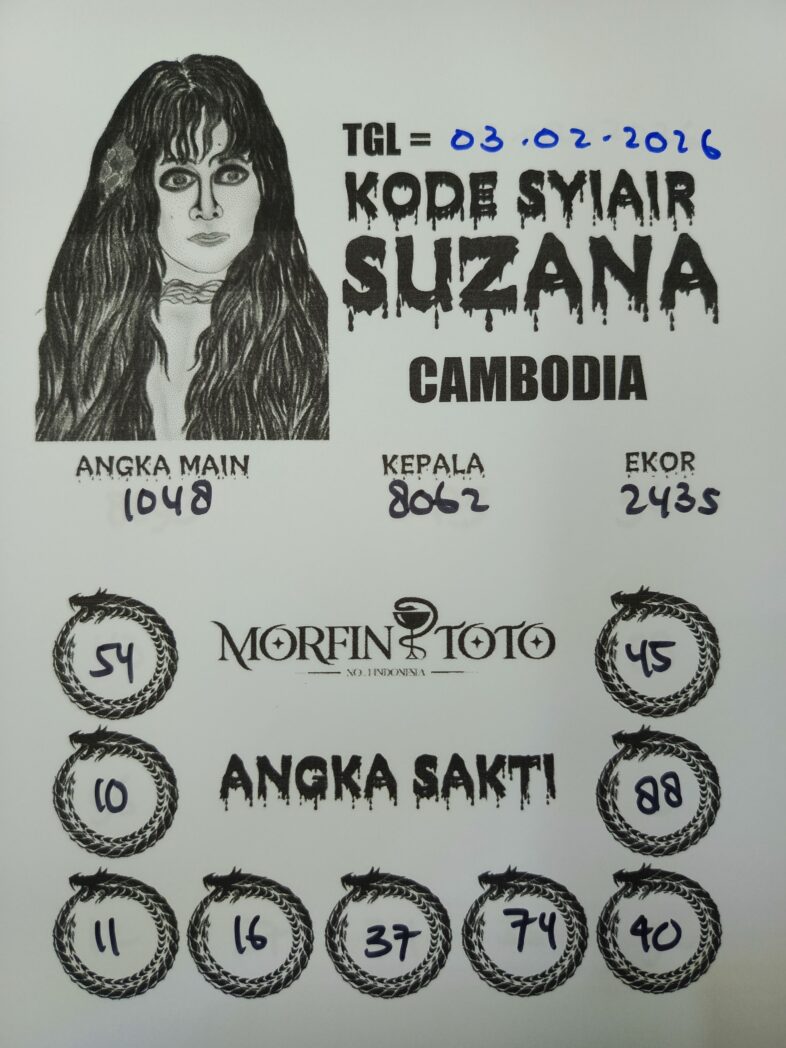 TGL = 03.02.2026
KODE SYIAIR
SUZANA
CAMBODIA
ANGKA MAIN KEPALA EKOR
1048 8062 2435
54 MORFIN TOTO 45
NO.1 INDONESIA
10 ANGKA SAKTI 88
11 16 37 74 40